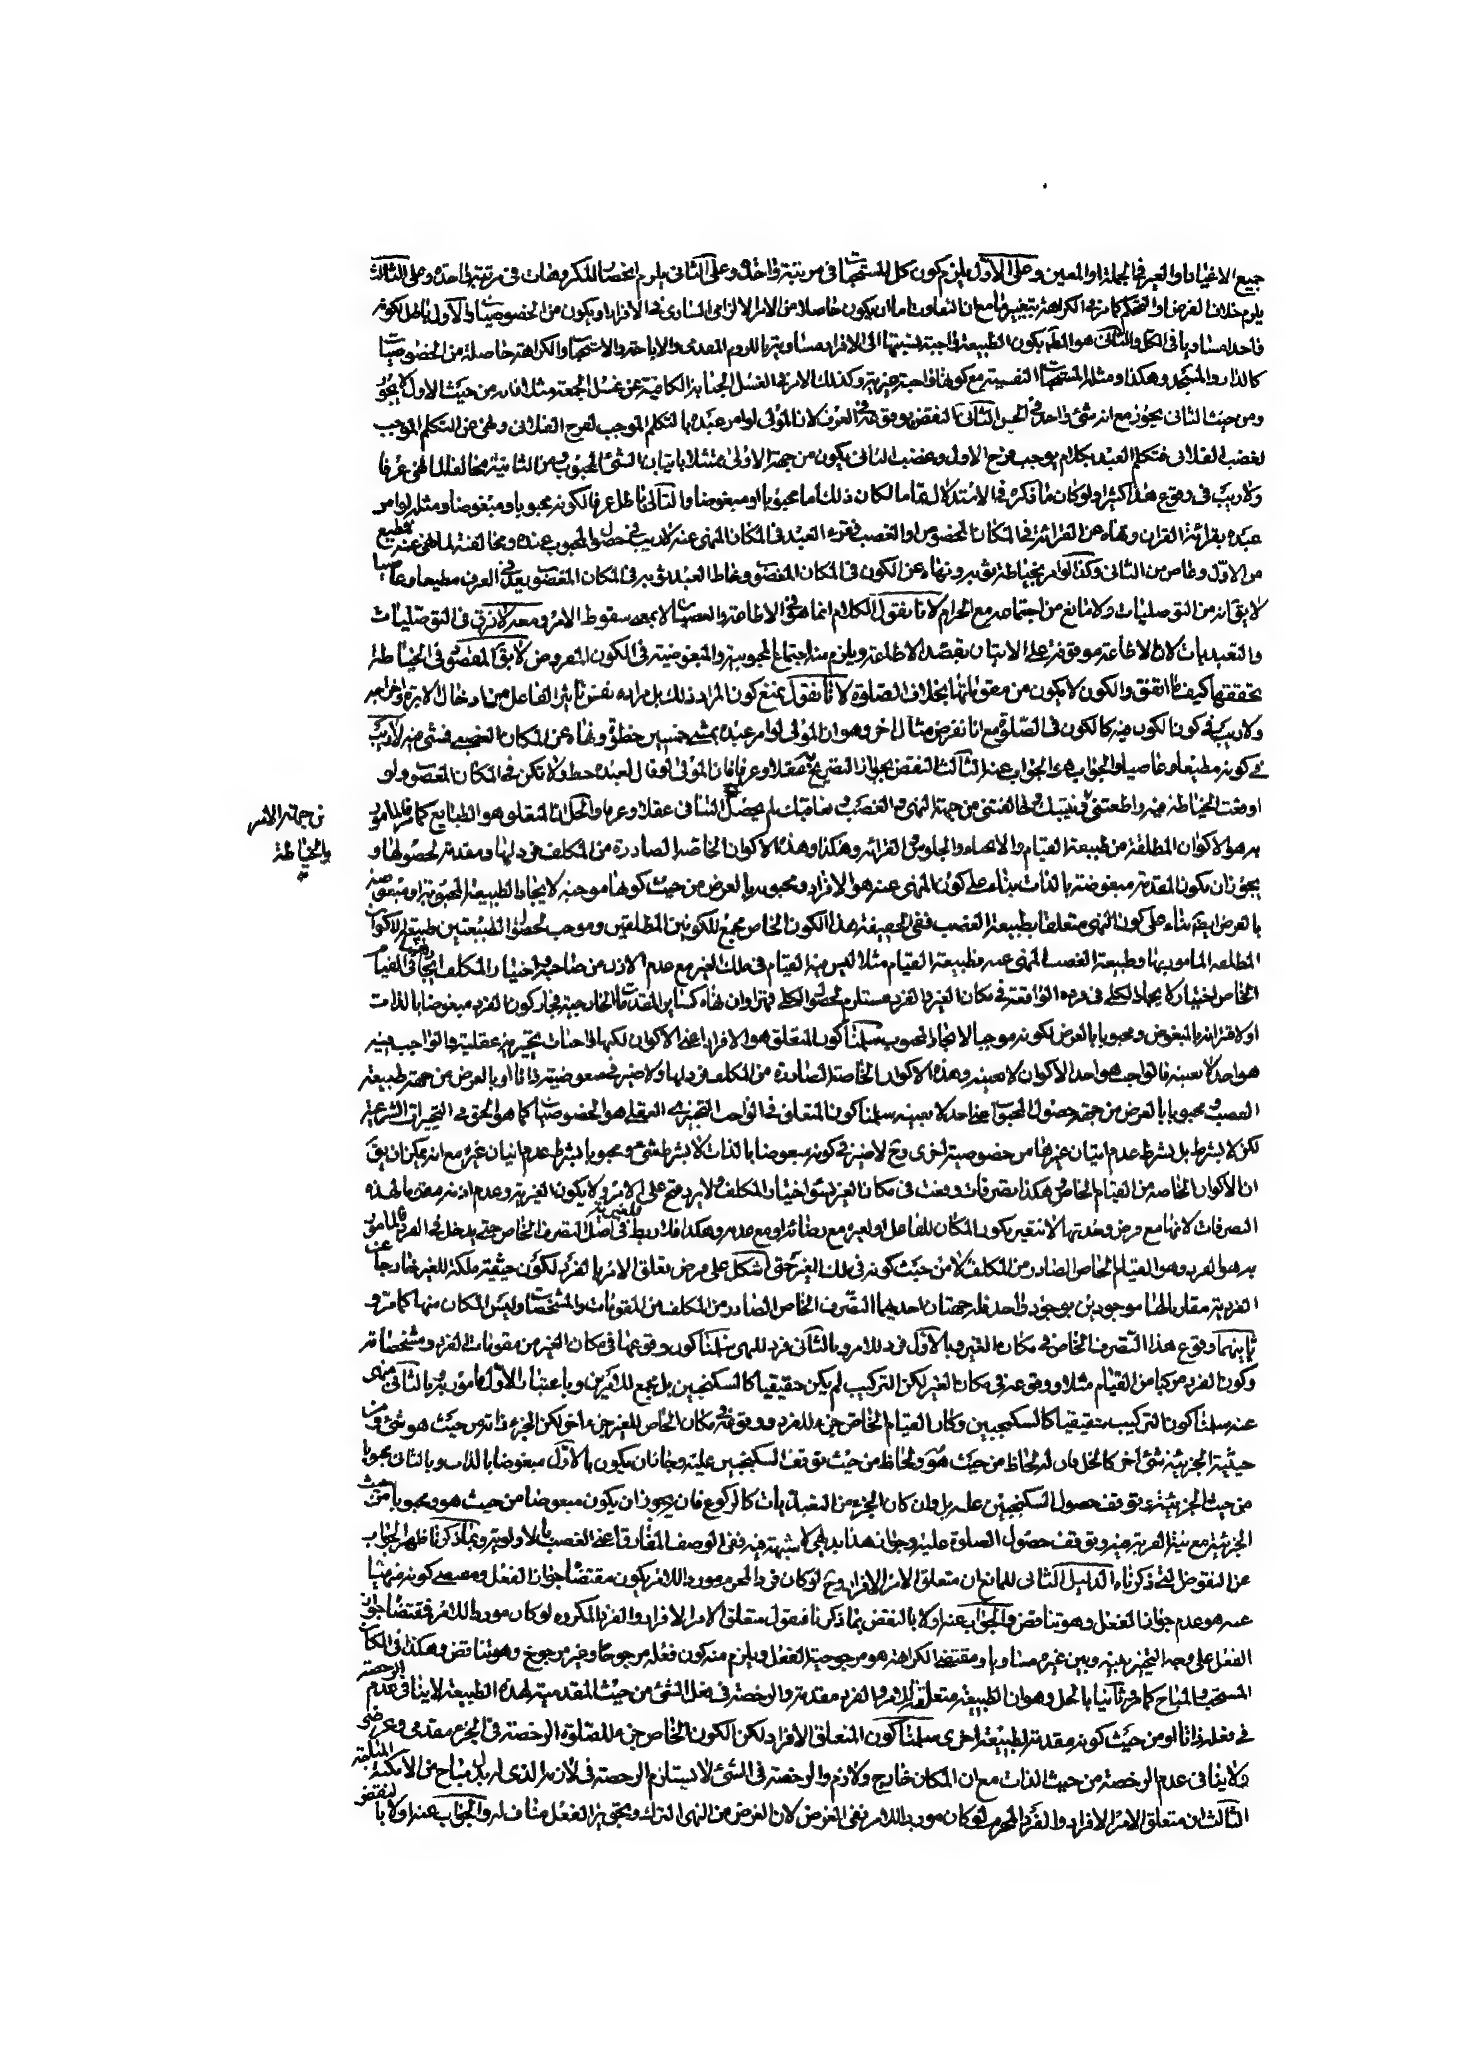 جميع الاغيار او الغير في الجملة او المعين وعلى الاول يلزم كون كل المستحبات في مرتبة واحدة وعلى الثاني يلزم انحصار المكروهات في مرتبة واحدة وعلى الثالث
يلزم خلاف الفرض او التحكم كما مر في الكراهة بتغيير ما مع ان التفاوت اما ان يكون حاصلا من الامر الالزامي المساوي في الافراد او يكون من الخصوصيات والاول باطل لكونه
واحدا مساويا في الكل والثاني هو المط بكون الطبيعة واجبة نسبتها الى الافراد مساوية باللزوم المقدمي والاباحة والاستحباب والكراهة حاصلة من الخصوصيات
كالدار والمسجد وهكذا ومثله المستحبات النفسية مع كونها واجبة غيرية وكذلك الامر في الغسل الجنابة الكافية عن غسل الجمعة مثلا فانه من حيث الاول لا يجوز
ومن حيث الثاني يجوز مع انه شيء واحد في الحس الثاني النقض بوقوعه في العرف لان المولى لو امر عبده بالتكلم الموجب لفرح الفلاني ونهى عن التكلم الموجب
لغضب الفلاني فتكلم العبد بكلام يوجب فرح الاول وغضب الثاني يكون من جهة الاولى ممتثلا باتيان الشيء المحبوب ومن الثانية مخالفا لما نهى عرفا
ولا ريب في وقوع هذا كثيرا ولو كان ما ذكره في الاستدلال تماما لكان ذلك اما محبوبا او مبغوضا والتالي باطل عرفا لكونه محبوبا ومبغوضا ومثله لو امر
عبده بقرائة القران ونهاه عن القرائة في المكان المخصوص او الغصب فقرء العبد في المكان المنهي عنه لا ريب في حصول المحبوب عنده ومخالفته لما نهى عنه فمطيع
من الاول وعاص من الثاني وكذا لو امر بخياطة ثوبه ونهاه عن الكون في المكان المغصوب وخاط العبد ثوبه في المكان المغصوب يعد في العرف مطيعا وعاصيا
لا يق انه من التوصليات ولا مانع من اجتماعه مع الحرام لانا نقول الكلام انما هو في الاطاعة والعصيان لا بمعنى سقوط الامر ومعه لا فرق في التوصليات
والتعبديات لان الاطاعة موقوفة على الاتيان بقصد الاطاعة ويلزم منه اجتماع المحبوبية والمبغوضية في الكون المفروض لا يق المغصوب في الخياطة
تحققها كيف ما اتفق والكون لا يكون من مقوماتها بخلاف الصلوة لانا نقول نمنع كون المراد ذلك بل مراده نفس تاثير الفاعل من ادخال الابرة واخراجه
ولا ريب في كون الكون فيه كالكون في الصلوة مع انا نفرض مثال اخر وهو ان المولى لو امر عبده بمشي خمسين خطوة ونهاه عن المكان الغصبي فمشى فيه لا ريب
في كونه مطيعا وعاصيا والجواب هو الجواب عنه الثالث النقض بجواز التصريح عقلا وعرفا فان المولى لو قال لعبده خط ولا تكن في المكان المغصوب ولو
اوقعت الخياطة فيه واطعتني فنثيبك ولو خالفتني من جهة النهي والغصب ونعاقبك لم يحصل التنافي عقلا وعرفا والحل ان المتعلق هو الطبايع كما مر فالمامور
به هو الاكوان المطلقة من طبيعة القيام والانحناء والجلوس والقرائة وهكذا وهذه الاكوان الخاصة الصادرة من المكلف فرد لها ومقدمة لحصولها و
يجوز ان يكون المقدمة مبغوضة بالذات بناء على كون المنهي عنه هو الافراد ومحبوبة بالعرض من حيث كونها موجبة لايجاد الطبيعة المحبوبة او مبغوضة
بالعرض ايضا بناء على كون النهي متعلقا بطبيعة الغصب ففي الحقيقة هذا الكون الخاص مجمع للكونين المطلقين وموجب لحصول الطبيعتين طبيعة الاكوان
المطلقة المامور بها وطبيعة الغصب المنهي عنه فطبيعة القيام مثلا ليس فيه القيام في ملك الغير مع عدم الاذن من صاحبه واختيار المكلف ايجاد القيام
الخاص لاختياره ايجاد الكلي في فرده الواقعة في مكان الغير والفرد مستلزم لحصول الكلي قهرا وان نهاه كسائر المقدمات الخارجية فجاز كون الفرد مبغوضا بالذات
او لاقترانه بالمبغوض ومحبوبا بالعرض لكونه موجبا لايجاد المحبوب سلمنا كون المتعلق هو الافراد اعني الاكوان لكنها واجبات تخييرية عقلية والواجب فيه
هو احد لا بعينه فالواجب هو احد الاكوان لا بعينه وهذه الاكوان الخاصة الصادرة من المكلف فرد لها ولا ضير في مبغوضيته ذاتا او بالعرض من جهة طبيعة
الغصب محبوبا بالعرض من جهة حصول المحبوب اعني احد لا بعينه سلمنا كون المتعلق في الواجب التخييري العقلي هو الخصوصيات كما هو الحق في التخييرات الشرعية
لكن لا بشرط بل بشرط عدم اتيان غيرها من خصوصية اخرى وح لا ضير في كونه مبغوضا بالذات لا بشرط شيء ومحبوبا بشرط عدم اتيان غيره مع انه يمكن ان يق
ان الاكوان الخاصة من القيام الخاص وهكذا تصرفات وقعت في مكان الغير بسوء اختيار المكلف ولا يرد قبح على الامر ولا يكون الغيرية وعدم اذنه مقدما لهذه
التصرفات لانها مع فرض وحدتها لا تتغير بكون المكان للفاعل او لغيره مع رضائه او مع عدمه وهكذا فلا ربط للغيرية في اصل التصرف الخاص حتى يدخل في الفرد فالمامور
به هو الفرد وهو القيام الخاص الصادر من المكلف لا من حيث كونه في ملك الغير حتى اشكل على فرض تعلق الامر بالفرد لكون حيثية ملكية للغير خارجا عن
الفردية مقارنا لها موجودين بوجود واحد فله جهتان احديهما التصرف الخاص الصادر من المكلف من المقومات والمشخصات وليس المكان منها كما مر و
ثانيهما وقوع هذا التصرف الخاص في مكان الغير وبالاول فرد للامر وبالثاني فرد للنهي سلمنا كون وقوعها في مكان الغير من مقومات الفرد ومشخصاته
وكون الفرد مركبا من القيام مثلا ووقوعه في مكان الغير لكن التركيب لم يكن حقيقيا كالسكنجبين بل مجمع للامرين وباعتبار الاول مامور به وبالثاني منهي
عنه سلمنا كون التركيب حقيقيا كالسكنجبين وكان القيام الخاص جزء للفرد ووقوعه في مكان الخاص للغير جزء اخر لكن الجزء ذاته من حيث هو شيء ومن
حيثية الجزئية شيء اخر كالخل فان له لحاظ من حيث هو ولحاظ من حيث توقف السكنجبين عليه وجاز ان يكون بالاول مبغوضا بالذات وبالثاني محبوبا
من حيث الجزئية وتوقف حصول السكنجبين عليه بل وان كان الجزء من التعبديات كالركوع فانه يجوز ان يكون مبغوضا من حيث هو ومحبوبا من حيث
الجزئية مع نية القربة فيه وتوقف حصول الصلوة عليه وجواز هذا بديهي لا شبهة فيه ففي الوصف المفارق اعني الغصب بالاولوية وبما ذكرنا ظهر الجواب
عن النقوض التي ذكرناه الدليل الثاني للمانع ان متعلق الامر الافراد وح لو كان فرد المحرم موردا للامر يكون مقتضاه جواز الفعل ومقتضى كونه منهيا
عنه هو عدم جواز الفعل وهو تناقض والجواب عنه اولا بالنقض بما ذكرنا فنقول متعلق الامر الافراد والفرد المكروه لو كان موردا للامر فمقتضاه جواز
الفعل على وجه التخيير بينه وبين غيره مساويا ومقتضى الكراهة هو مرجوحية الفعل ويلزم منه كون فعله مرجوحا وغير مرجوح وهو تناقض وهكذا في الكل
المستحب والمباح كما مر ثانيا بالحل وهو ان الطبيعة متعلقة للامر والفرد مقدمة والرخصة في فعل الشيء من حيث المقدمية لهذه الطبيعة لا ينافي عدم الرخصة
في فعله ذاتا او من حيث كونه مقدمة لطبيعة اخرى سلمنا كون المتعلق الافراد لكن الكون الخاص جزء للصلوة الرخصة في الجزء مقدمي وعرضي
فلا ينافي عدم الرخصة من حيث الذات مع ان المكان خارج ولازم والرخصة في الشيء لا يستلزم الرخصة في لازمه الذي له بدل مباح من الامكنة المباحة
الثالث ان متعلق الامر الافراد والفرد المحرم لو كان موردا للامر نفى الغرض لان الغرض من النهي الترك وتجويز الفعل مناف له والجواب عنه اولا بالنقض
من جهة الامر
بالخياطة